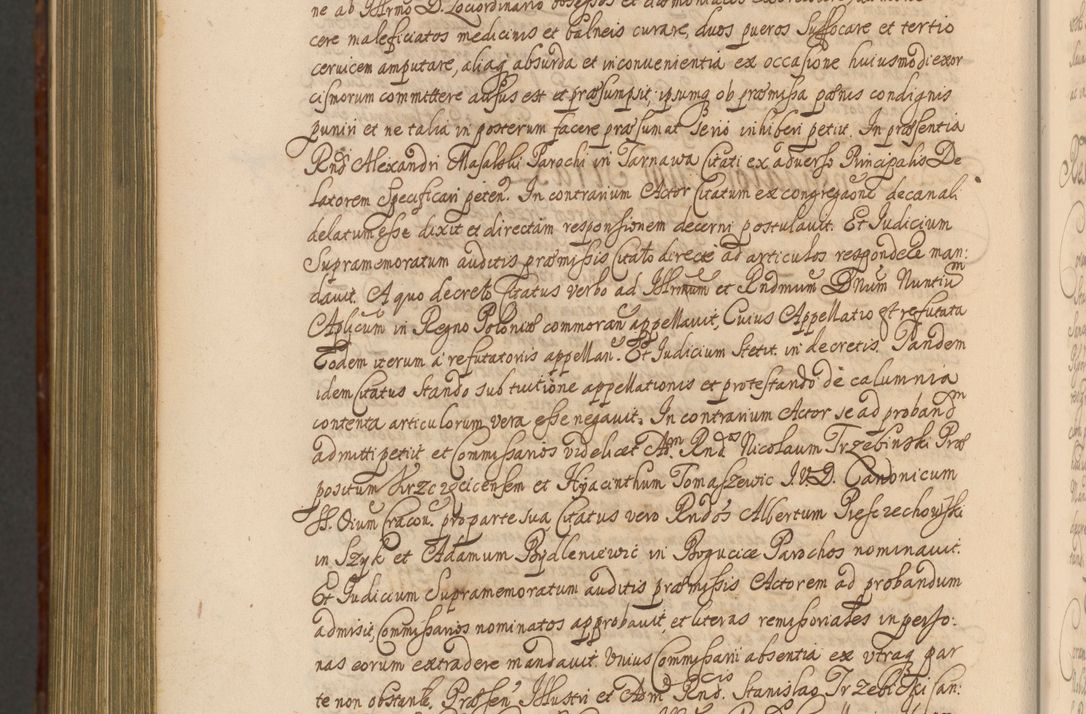 ne ab Illrmo D. Loci ordinario obsessos et
cere maleficiatos medicinis et balneis curare, duos pueros suffocare et tertio
cervicem amputare, aliaq absurda et inconvenientia ex occasione huiusmodi exor
cismorum committere ausus est et præsumpsit, ipsumq ob præmissa pœnis condignis
puniri et ne talia in posterum facere præsumat serio inhiberi petiit. In præsentia
Rndi Alexandri Masalski Parochi in Tarnawa Citati ex adverso Principalis De
latorem specificari peten. In contrarium Actor Citatum ex congregaone decanali
delatum esse dixit et directam responsionem decerni postulavit. Et Iudicium
Supramemoratum auditis præmissis Citato directe ad articulos respondere man:
davit. A quo decreto Citatus verbo ad Illrmum et Rndmum Dnum Nuntium
Aplicum in Regno Poloniæ commoran appellavit, Cuius Appellatio et refutata
Eodem iterum a refutatoris appellan. Et Iudicium stetit in decretis. Tandem
idem Citatus stando sub tuitione appellationis et protestando de calumnia
contenta articulorum vera esse negavit. In contrarium Actor se ad proband
admitti petiit et Commissarios videlicet Adm Rndos Nicolaum Trzebinski Præ
positum Krzczęcicensem et Hyacinthum Tomaszewic I.V.D. Canonicum
SS. Oium Cracov. pro parte sua, Citatus vero Rndos Albertum Piesczechowski
in Szyk et Adamum Bydleniewic in Bogucice Parochos nominavit.
Et Iudicium Supramemoratum auditis præmissis Actorem ad probandum
admisit, Commissarios nominatos approbavit, et literas remissoriales in perso:
nas eorum extradere mandavit. Unius Commissarii absentia ex utraq par
te non obstante, Præsen Illustri et Adm Rndo. Stanislao Trzebinski Can: